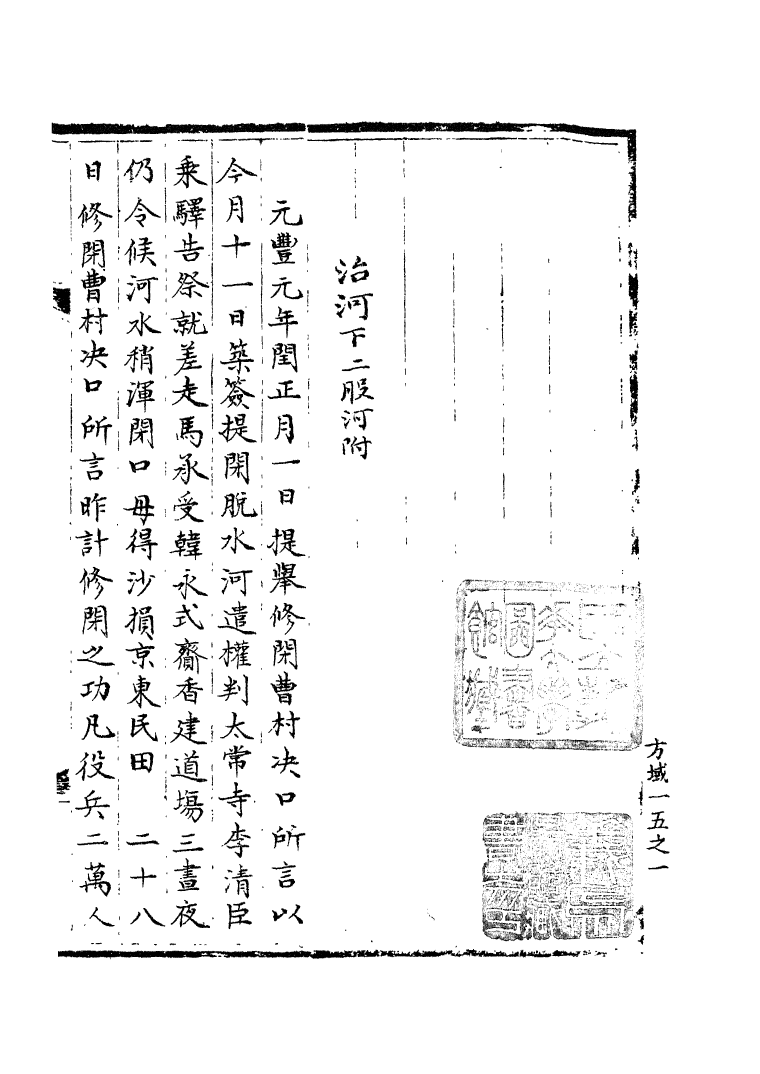 治河下二股河附
元豐元年閏正月一日提舉修閉曹村决口所言以
今月十一日築簽提閉脫水河遣權判太常寺李清臣
乘驛告祭就差走馬承受韓永式齎香建道場三晝夜
仍令候河水稍渾閉口毋得沙損京東民田 二十八
日修閉曹村决口所言昨計修閉之功凡役兵二萬人
方域一五之一